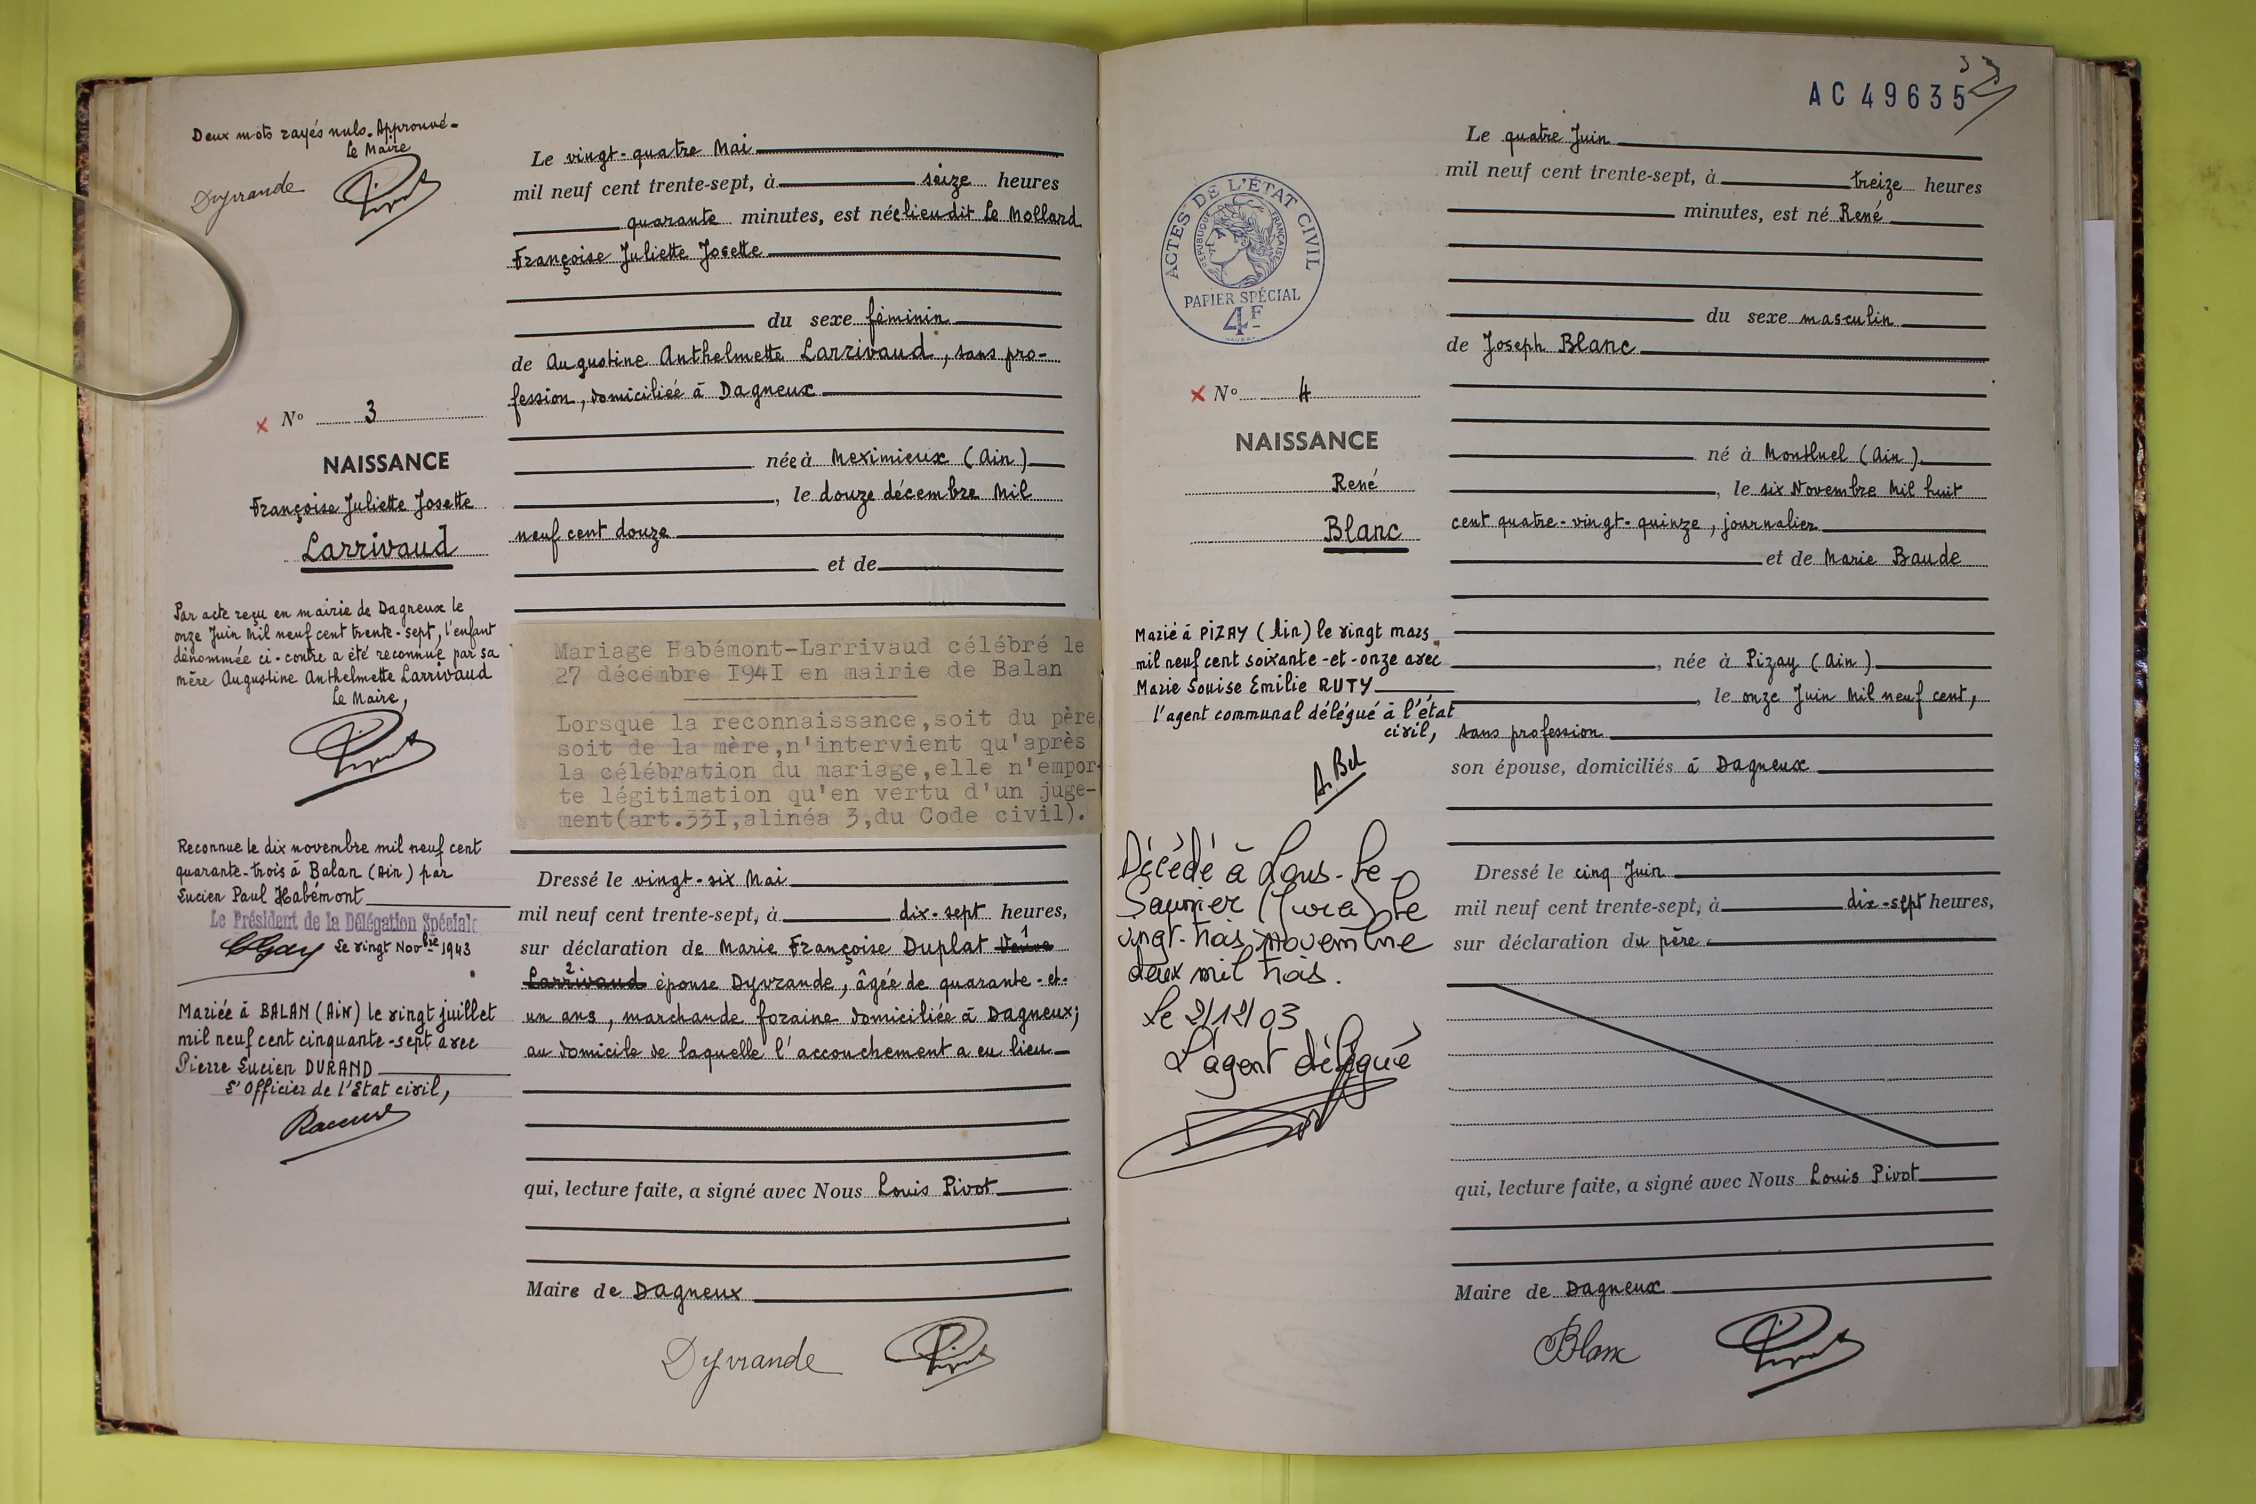 Deux mots rayés nuls. Approuvé -
Le Maire
Dyvrande
Nº 3
NAISSANCE
Françoise Juliette Josette
Larrivaud
Par acte reçu en mairie de Dagneux le
onze Juin Mil neuf cent trente-sept, l'enfant
dénommée ci-contre a été reconnue par sa
mère Augustine Anthelmette Larrivaud
Le Maire,
Reconnue le dix novembre mil neuf cent
quarante-trois à Balan (Ain) par
Lucien Paul Habémont
Le Président de la Délégation Spéciale
Le vingt Novbre 1943
Mariée à BALAN (Ain) le vingt juillet
mil neuf cent cinquante-sept avec
Pierre Lucien DURAND
L'Officier de l'Etat civil,
Le vingt-quatre Mai
mil neuf cent trente-sept, à seize heures
quarante minutes, est née lieudit Le Mollard
Françoise Juliette Josette
du sexe féminin
de Augustine Anthelmette Larrivaud, sans pro-
fession, domiciliée à Dagneux
née à Meximieux (Ain)
, le douze décembre Mil
neuf cent douze
et de
Mariage Habémont-Larrivaud célébré le
27 décembre I94I en mairie de Balan
Lorsque la reconnaissance,soit du père
soit de la mère,n'intervient qu'après
la célébration du mariage,elle n'empor-
te légitimation qu'en vertu d'un juge-
ment(art.33I,alinéa 3,du Code civil).
Dressé le vingt-six Mai
mil neuf cent trente-sept, à dix-sept heures,
sur déclaration de Marie Françoise Duplat Veuve 1
Larrivaud 2 épouse Dyvrande, âgée de quarante-et-
un ans, marchande foraine domiciliée à Dagneux;
au domicile de laquelle l'accouchement a eu lieu
qui, lecture faite, a signé avec Nous Louis Pivot
Maire de Dagneux
Dyvrande
AC 49635
ACTES DE L'ÉTAT CIVIL
RÉPUBLIQUE FRANÇAISE
PAPIER SPÉCIAL
4F
Nº 4
NAISSANCE
René
Blanc
Marié à PIZAY (Ain) le vingt mars
mil neuf cent soixante-et-onze avec
Marie Louise Emilie RUTY
l'agent communal délégué à l'état
civil,
A. Bel
Décédé à Lons-le-
Saunier (Jura) le
vingt-trois novembre
deux mil trois.
Le 2/12/03
L'agent délégué
Le quatre Juin
mil neuf cent trente-sept, à treize heures
minutes, est né René
du sexe masculin
de Joseph Blanc
né à Montluel (Ain)
, le six Novembre Mil huit
cent quatre-vingt-quinze, journalier
et de Marie Baude
, née à Pizay (Ain)
, le onze Juin Mil neuf cent,
sans profession
son épouse, domiciliés à Dagneux
Dressé le cinq Juin
mil neuf cent trente-sept, à dix-sept heures,
sur déclaration du père
qui, lecture faite, a signé avec Nous Louis Pivot
Maire de Dagneux
Blanc